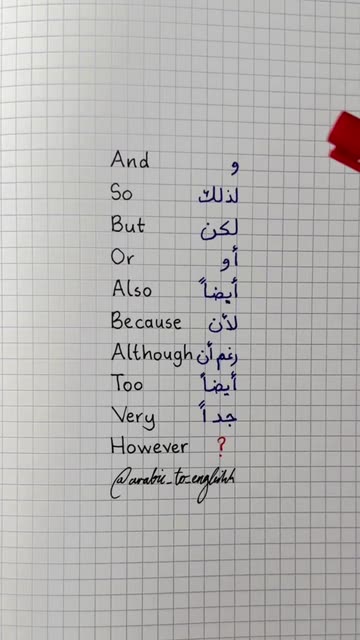 And و
So لذلك
But لكن
Or أو
Also أيضاً
Because لأن
Although رغم أن
Too أيضاً
Very جداً
However ?
@arabic_to_englishh